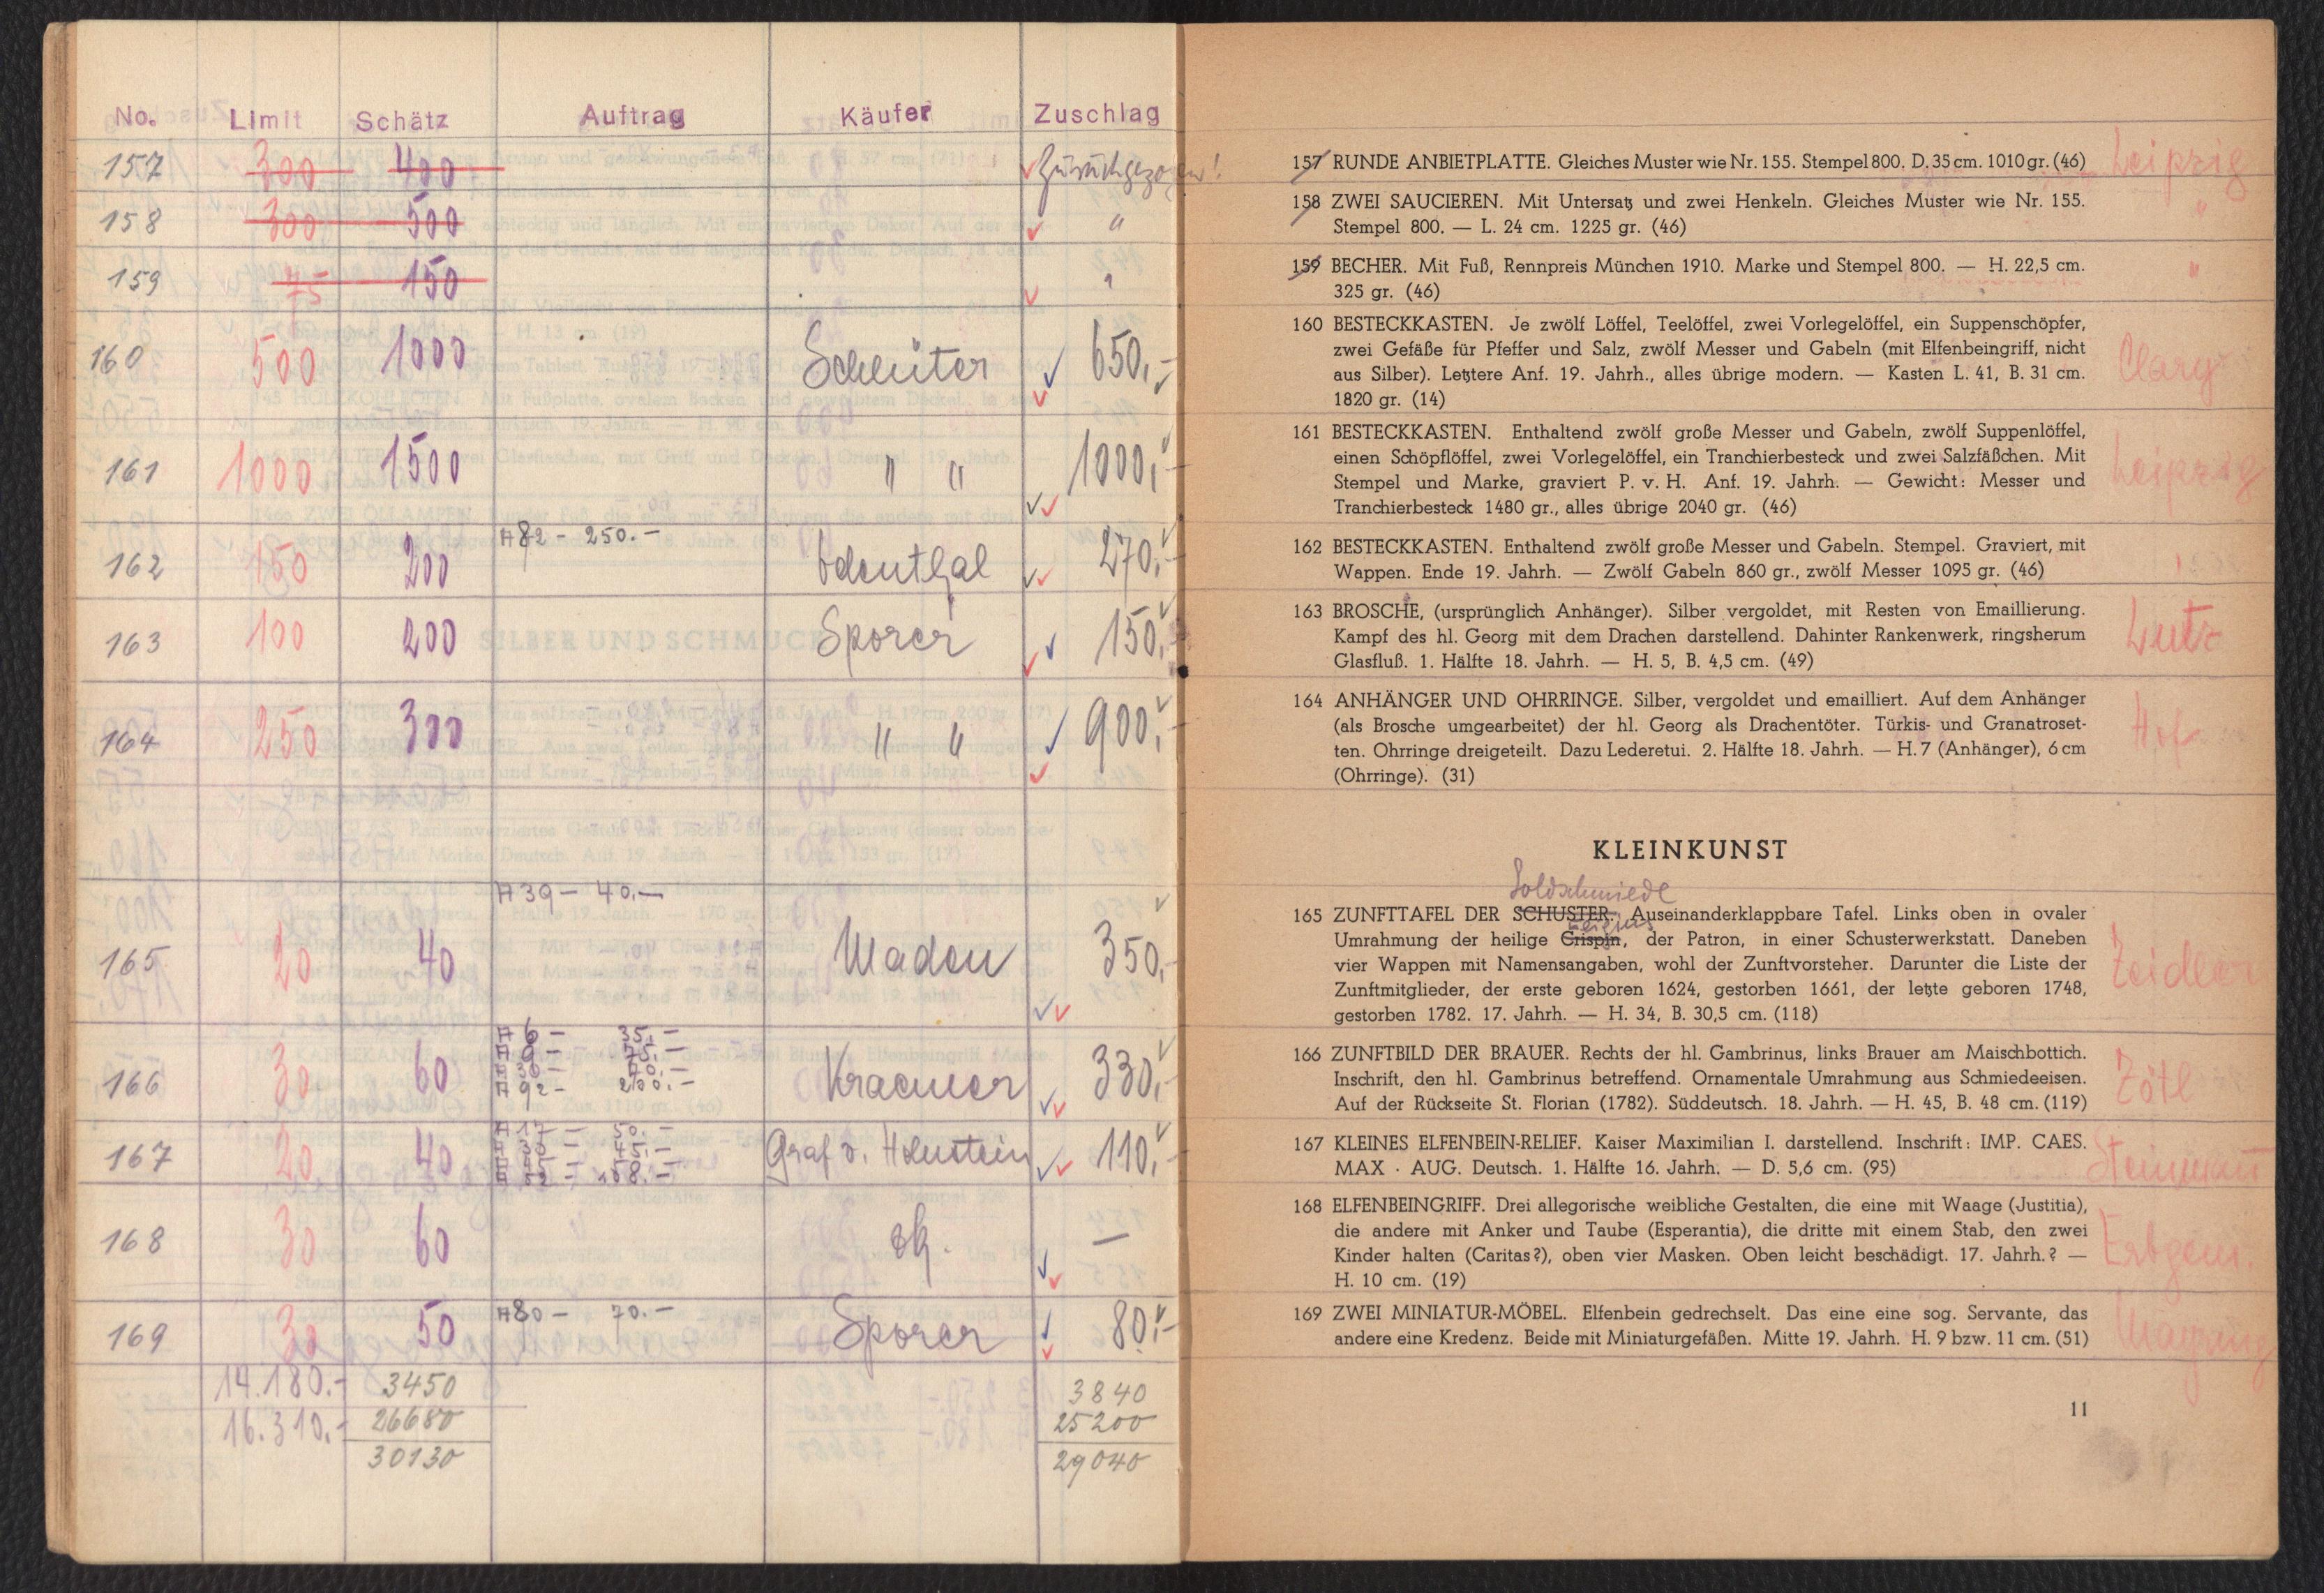 No. Limit Schätz Auftrag Käufer Zuschlag
157 300 400 Zurückgezogen!
158 300 500 "
159 75 150 "
160 500 1000 Schlüter 650,-
161 1000 1500 " " 1000,-
162 150 200 A82 - 250.- 270,-
163 100 200 Sporer 150,-
164 250 300 " " 900,-
165 20 40 A39 - 40.- 350,-
166 30 60 Kraemer 330,-
A 6 - 35.-
A 9 - 75.-
A 36 - 70.-
A 92 - 200.-
167 20 40 Graf v. Holnstein 110,-
A 17 - 50.-
A 30 - 45.-
168 30 60 —
169 30 50 A80 - 70.- Sporer 80,-
14.180.- 3450 3840
16.310.- 26680 25200
30130 29040
157 RUNDE ANBIETPLATTE. Gleiches Muster wie Nr. 155. Stempel 800. D. 35 cm. 1010 gr. (46) Leipzig
158 ZWEI SAUCIEREN. Mit Untersatz und zwei Henkeln. Gleiches Muster wie Nr. 155. "
Stempel 800. — L. 24 cm. 1225 gr. (46)
159 BECHER. Mit Fuß, Rennpreis München 1910. Marke und Stempel 800. — H. 22,5 cm. "
325 gr. (46)
160 BESTECKKASTEN. Je zwölf Löffel, Teelöffel, zwei Vorlegelöffel, ein Suppenschöpfer,
zwei Gefäße für Pfeffer und Salz, zwölf Messer und Gabeln (mit Elfenbeingriff, nicht Clary
aus Silber). Letztere Anf. 19. Jahrh., alles übrige modern. — Kasten L. 41, B. 31 cm.
1820 gr. (14)
161 BESTECKKASTEN. Enthaltend zwölf große Messer und Gabeln, zwölf Suppenlöffel,
einen Schöpflöffel, zwei Vorlegelöffel, ein Tranchierbesteck und zwei Salzfäßchen. Mit Leipzig
Stempel und Marke, graviert P. v. H. Anf. 19. Jahrh. — Gewicht: Messer und
Tranchierbesteck 1480 gr., alles übrige 2040 gr. (46)
162 BESTECKKASTEN. Enthaltend zwölf große Messer und Gabeln. Stempel. Graviert, mit
Wappen. Ende 19. Jahrh. — Zwölf Gabeln 860 gr., zwölf Messer 1095 gr. (46)
163 BROSCHE, (ursprünglich Anhänger). Silber vergoldet, mit Resten von Emaillierung.
Kampf des hl. Georg mit dem Drachen darstellend. Dahinter Rankenwerk, ringsherum Lutz
Glasfluß. 1. Hälfte 18. Jahrh. — H. 5, B. 4,5 cm. (49)
164 ANHÄNGER UND OHRRINGE. Silber, vergoldet und emailliert. Auf dem Anhänger
(als Brosche umgearbeitet) der hl. Georg als Drachentöter. Türkis- und Granatroset- Hof
ten. Ohrringe dreigeteilt. Dazu Lederetui. 2. Hälfte 18. Jahrh. — H. 7 (Anhänger), 6 cm
(Ohrringe). (31)
KLEINKUNST
Goldschmiede
165 ZUNFTTAFEL DER SCHUSTER. Auseinanderklappbare Tafel. Links oben in ovaler
Eligius
Umrahmung der heilige Crispin, der Patron, in einer Schusterwerkstatt. Daneben
vier Wappen mit Namensangaben, wohl der Zunftvorsteher. Darunter die Liste der Zeidler
Zunftmitglieder, der erste geboren 1624, gestorben 1661, der letzte geboren 1748,
gestorben 1782. 17. Jahrh. — H. 34, B. 30,5 cm. (118)
166 ZUNFTBILD DER BRAUER. Rechts der hl. Gambrinus, links Brauer am Maischbottich.
Inschrift, den hl. Gambrinus betreffend. Ornamentale Umrahmung aus Schmiedeeisen. Zötl
Auf der Rückseite St. Florian (1782). Süddeutsch. 18. Jahrh. — H. 45, B. 48 cm. (119)
167 KLEINES ELFENBEIN-RELIEF. Kaiser Maximilian I. darstellend. Inschrift: IMP. CAES.
MAX · AUG. Deutsch. 1. Hälfte 16. Jahrh. — D. 5,6 cm. (95)
168 ELFENBEINGRIFF. Drei allegorische weibliche Gestalten, die eine mit Waage (Justitia),
die andere mit Anker und Taube (Esperantia), die dritte mit einem Stab, den zwei
Kinder halten (Caritas?), oben vier Masken. Oben leicht beschädigt. 17. Jahrh.? — Erbgem.
H. 10 cm. (19)
169 ZWEI MINIATUR-MÖBEL. Elfenbein gedrechselt. Das eine eine sog. Servante, das
andere eine Kredenz. Beide mit Miniaturgefäßen. Mitte 19. Jahrh. H. 9 bzw. 11 cm. (51)
11